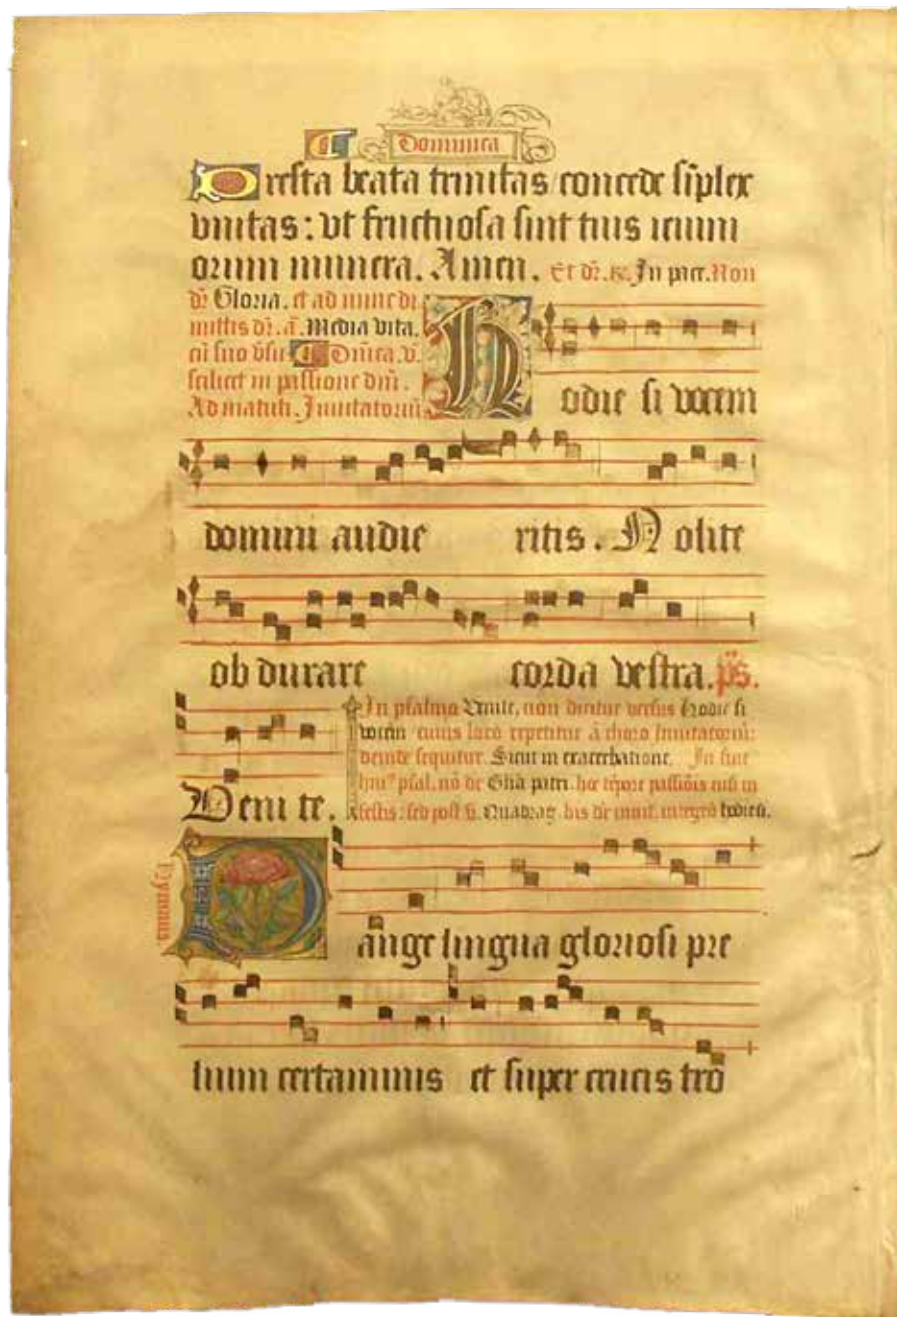 Dominica
Presta beata trinitas concede sĩplex
vnitas: vt fructuosa sint tuis ieiuni
orum munera. Amen. Et dr̃. ℟. In pace. Non
dr̃ Gloria. et ad nunc di
mittis dr̃. ã. Media vita.
cũ suo v̈su Dñica. v.
scilicet in passione dñi.
Ad matuti. Inuitatoriũ
Hodie si vocem
domini audie ritis. Nolite
ob durare corda vestra. ps̃.
In psalmo Venite, non dicitur versus Hodie si
vocem cuius loco repetitur à choro Inuitatoriũ:
deinde sequitur. Sicut in exacerbatione. In fine
psal. nõ dr̃ Glña patri. hoc tẽpore passiõis nisi in
festis: sed post Quadrag. bis dr̃ inuit. integrũ hodie si.
Veni te.
Hymnus
Pange lingua gloriosi pre
lium certaminis et super crucis tro